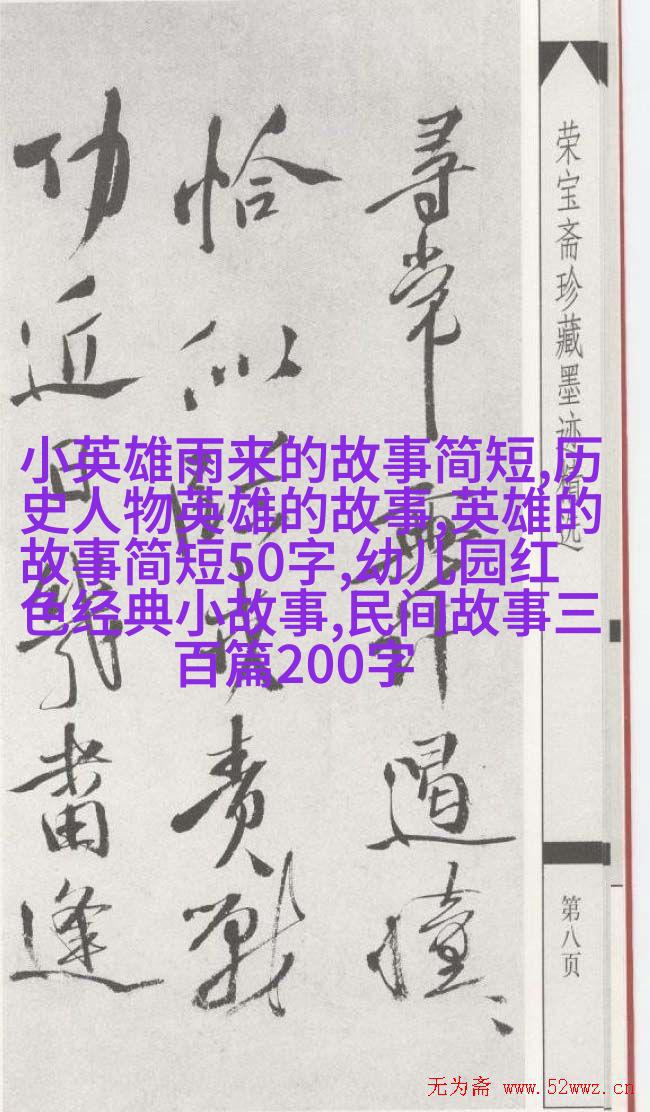 尋常無计遏憧、、
恰似責戰
功近日逢
荣宝斋珍藏墨迹精选
第八页
小英雄雨来的故事简短,历
史人物英雄的故事,英雄的
故事简短50字,幼儿园红
色经典小故事,民间故事三
百篇200字
无为斋 www.52wwz.cn